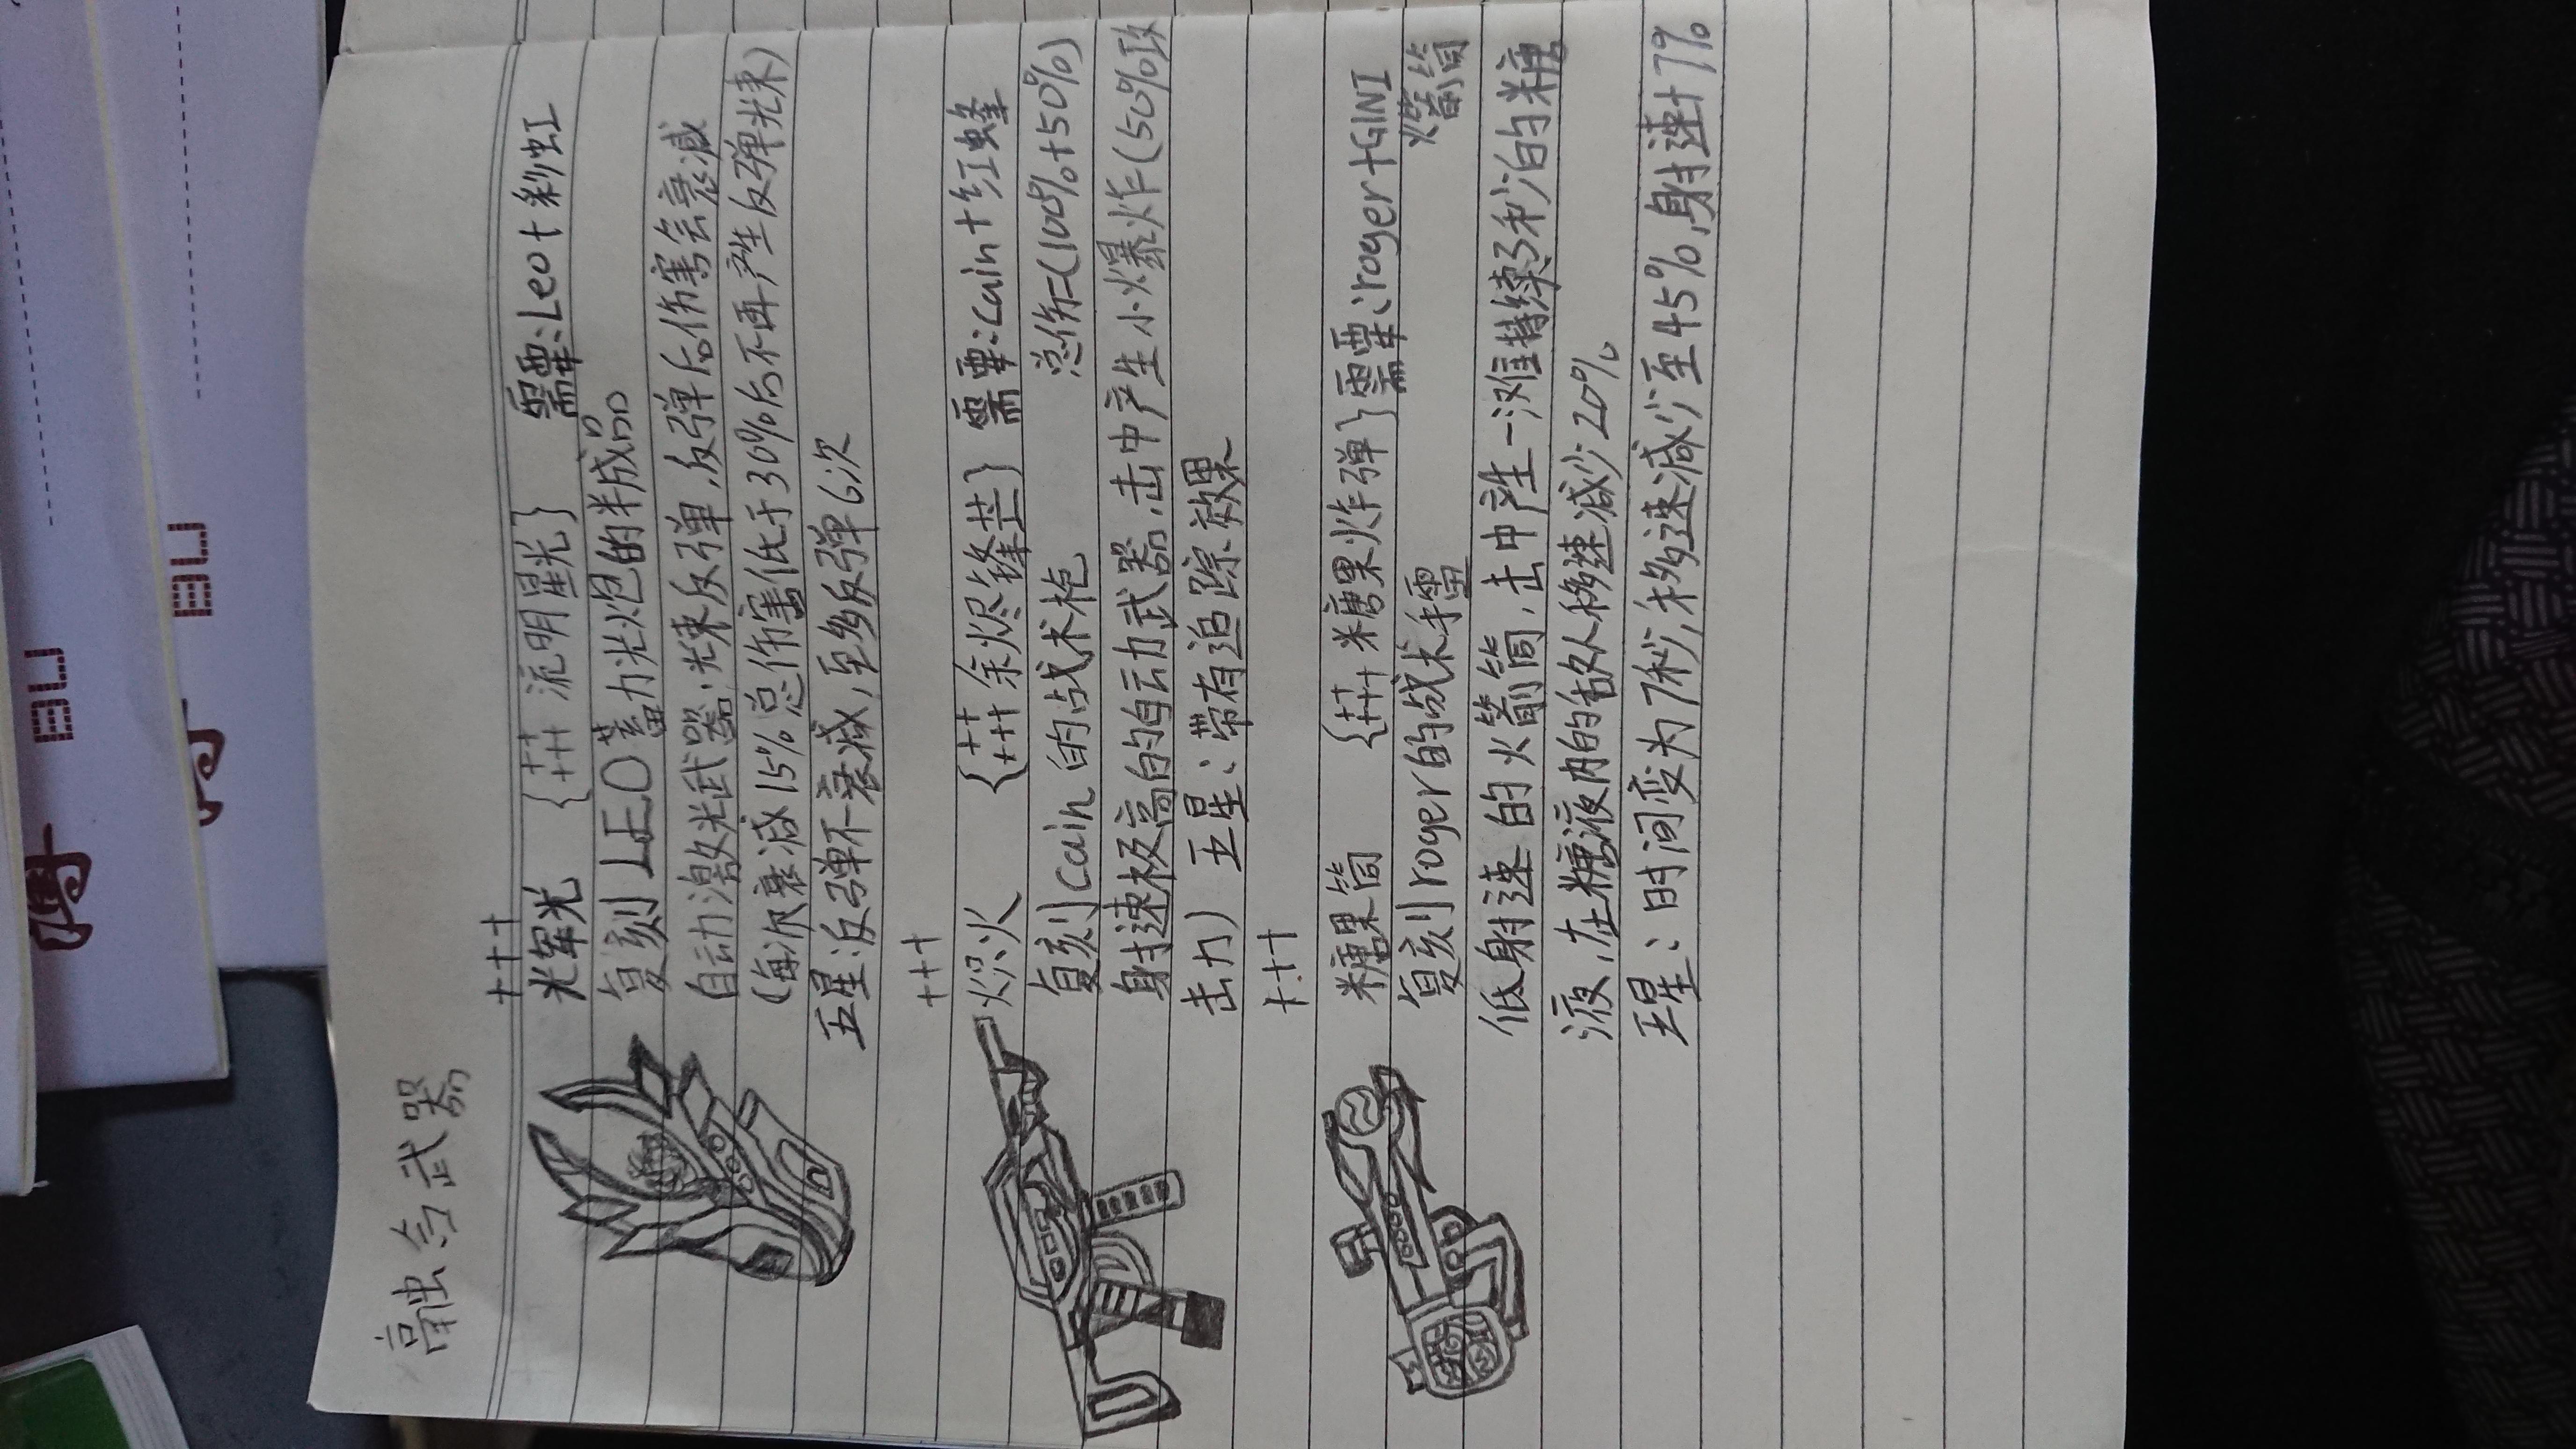 融合武器
+++
光晕光 {+++++ 流明星光} 需要:Leo+彩虹
复刻LEO蓄力光炮的半成品
自动激光武器.光束反弹,反弹后伤害会衰减
(每次衰减15%总伤害低于30%后不再产生反弹光束)
五星:反弹不衰减,至多反弹6次
+++
焰火 {+++++余烬锋芒} 需要:Cain+红蜂
复刻Cain的战术枪 总伤=(100%+50%)
射速极高的自动武器.击中产生小爆炸(50%攻
击力) 五星:带有追踪效果
+++
糖果筒 {+++++糖果炸弹} 需要:roger+GINI
火箭筒
复刻roger的战术手雷
低射速的火箭筒.击中产生一滩持续3秒的糖
液,在糖液内的敌人移速减少20%
五星:时间变为7秒,移速减少至45%,射速+7%